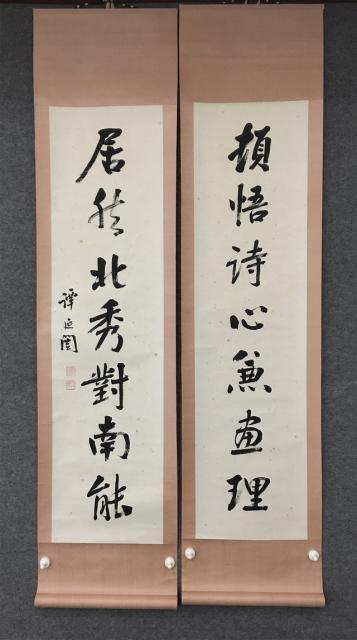 頓悟詩心兼畫理
居然北秀對南能
譚延闓